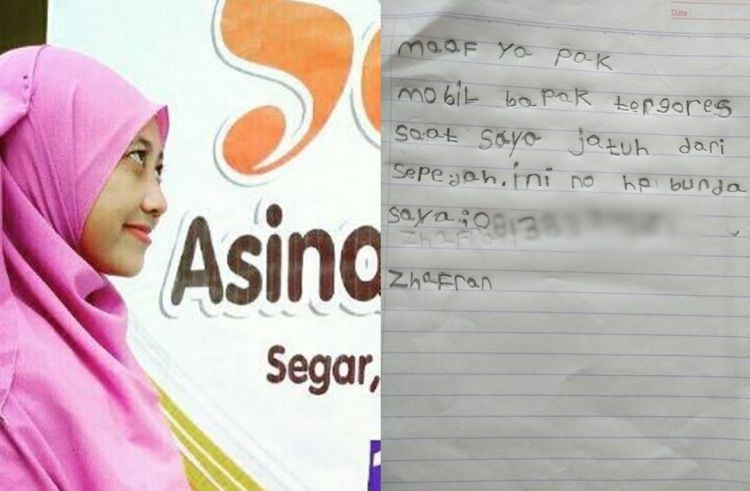 Asino
Segar,
Date:
maaf ya pak
mobil bapak tergores
saat saya jatuh dari
sepedah. ini no hp bunda
saya:0813
Zhafra
Zhafran